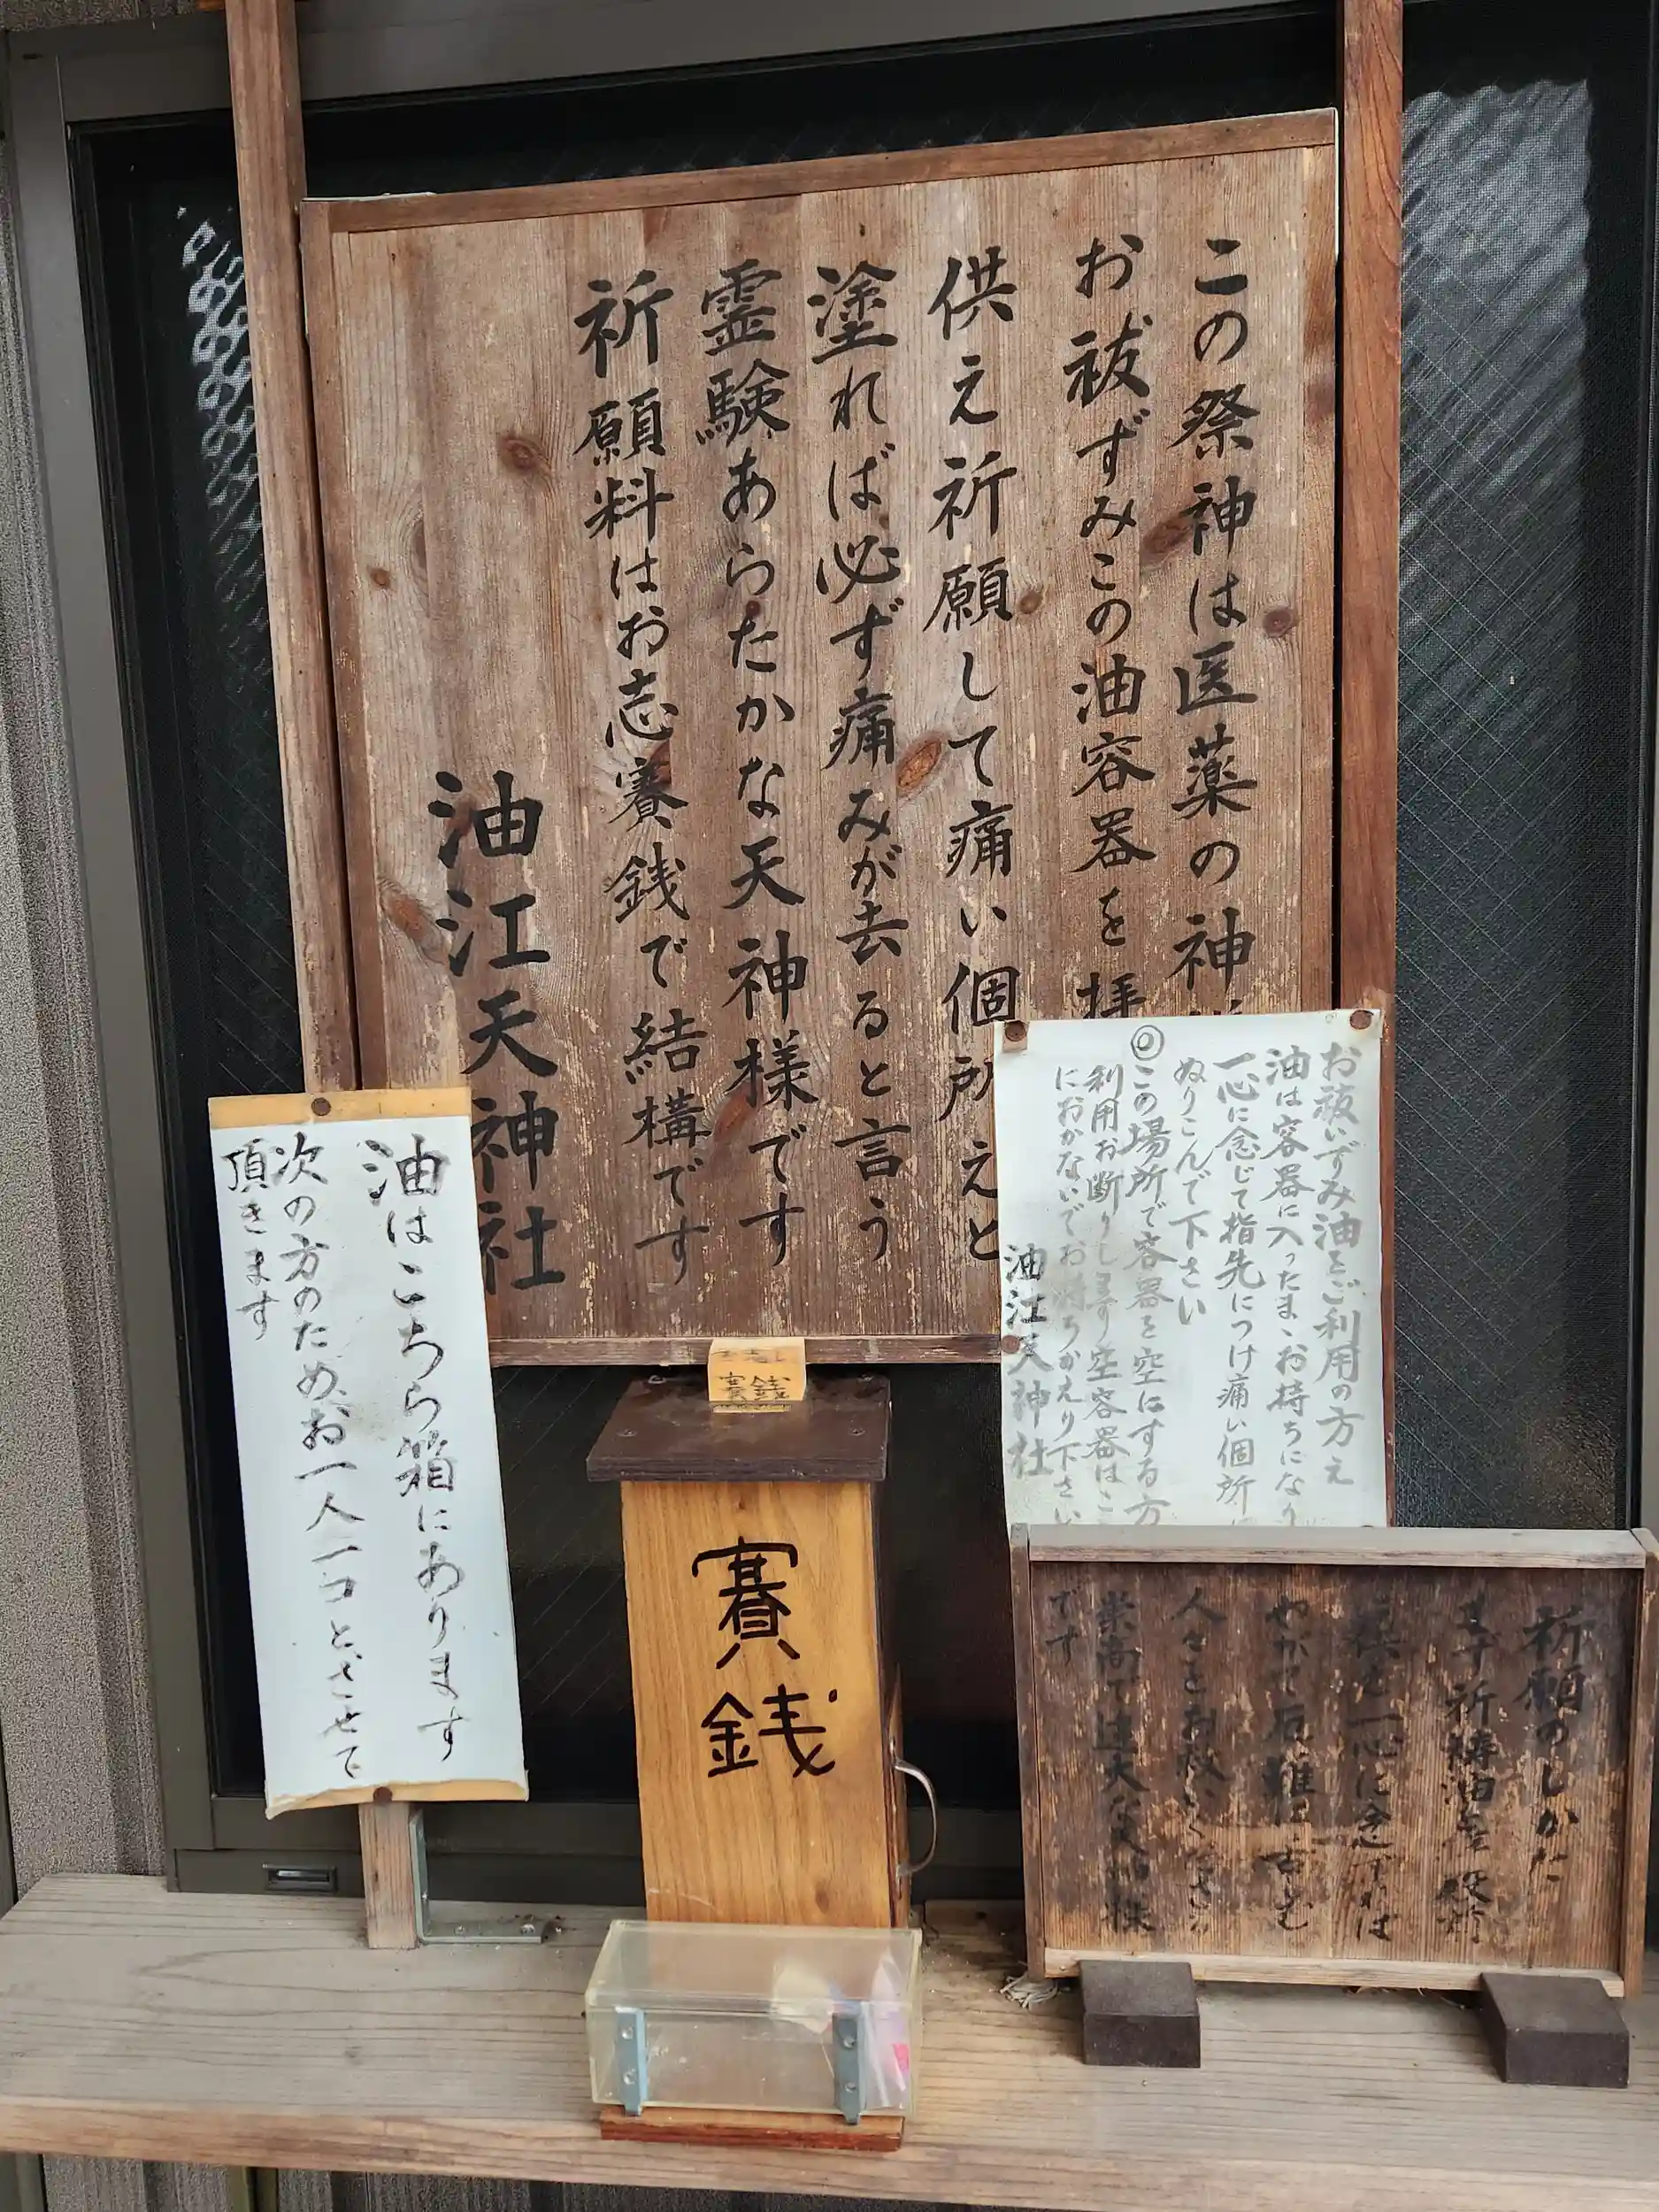 この祭神は医薬の神
お祓ずみこの油容器を拝
供え祈願して痛い個所えと
塗れば必ず痛みが去ると言う
霊験あらたかな天神様です
祈願料はお志賽銭で結構です
油江天神社
お祓いずみ油をご利用の方え
油は容器に入ったまゝお持ちになり
一心に念じて指先につけ痛い個所に
ぬりこんで下さい
◎この場所で容器を空にする方
利用お断りします空容器はこ
におかないでお持ちかえり下さい
油江天神社
油はこちら箱にあります
次の方のため、お一人一コとさせて
頂きます
賽銭
賽銭
祈願のしかた
ます祈祷油を
供え一心に念ずれば
やがて
人々をお救いくださる
崇高で
です